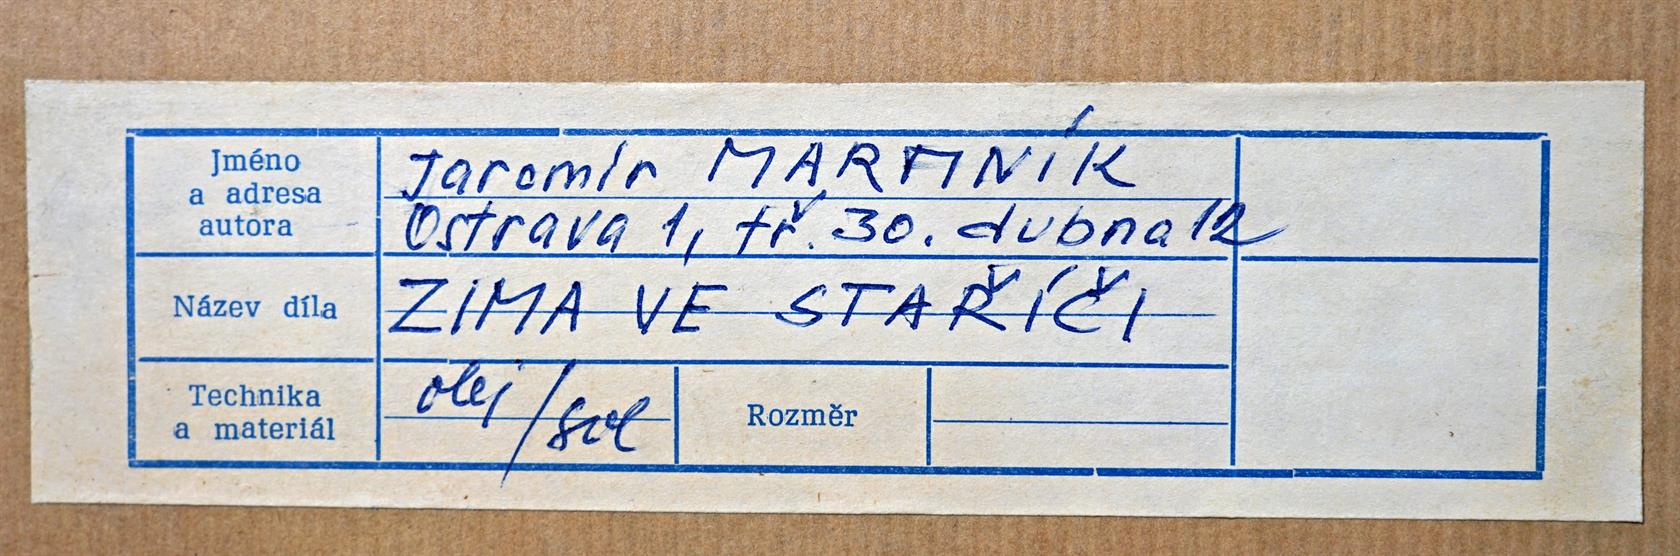 Jméno
a adresa
autora
Jaromír MARTINÍK
Ostrava 1, tř. 30. dubna 12
Název díla
ZIMA VE STAŘÍČI
Technika
a materiál
olej/sol
Rozměr